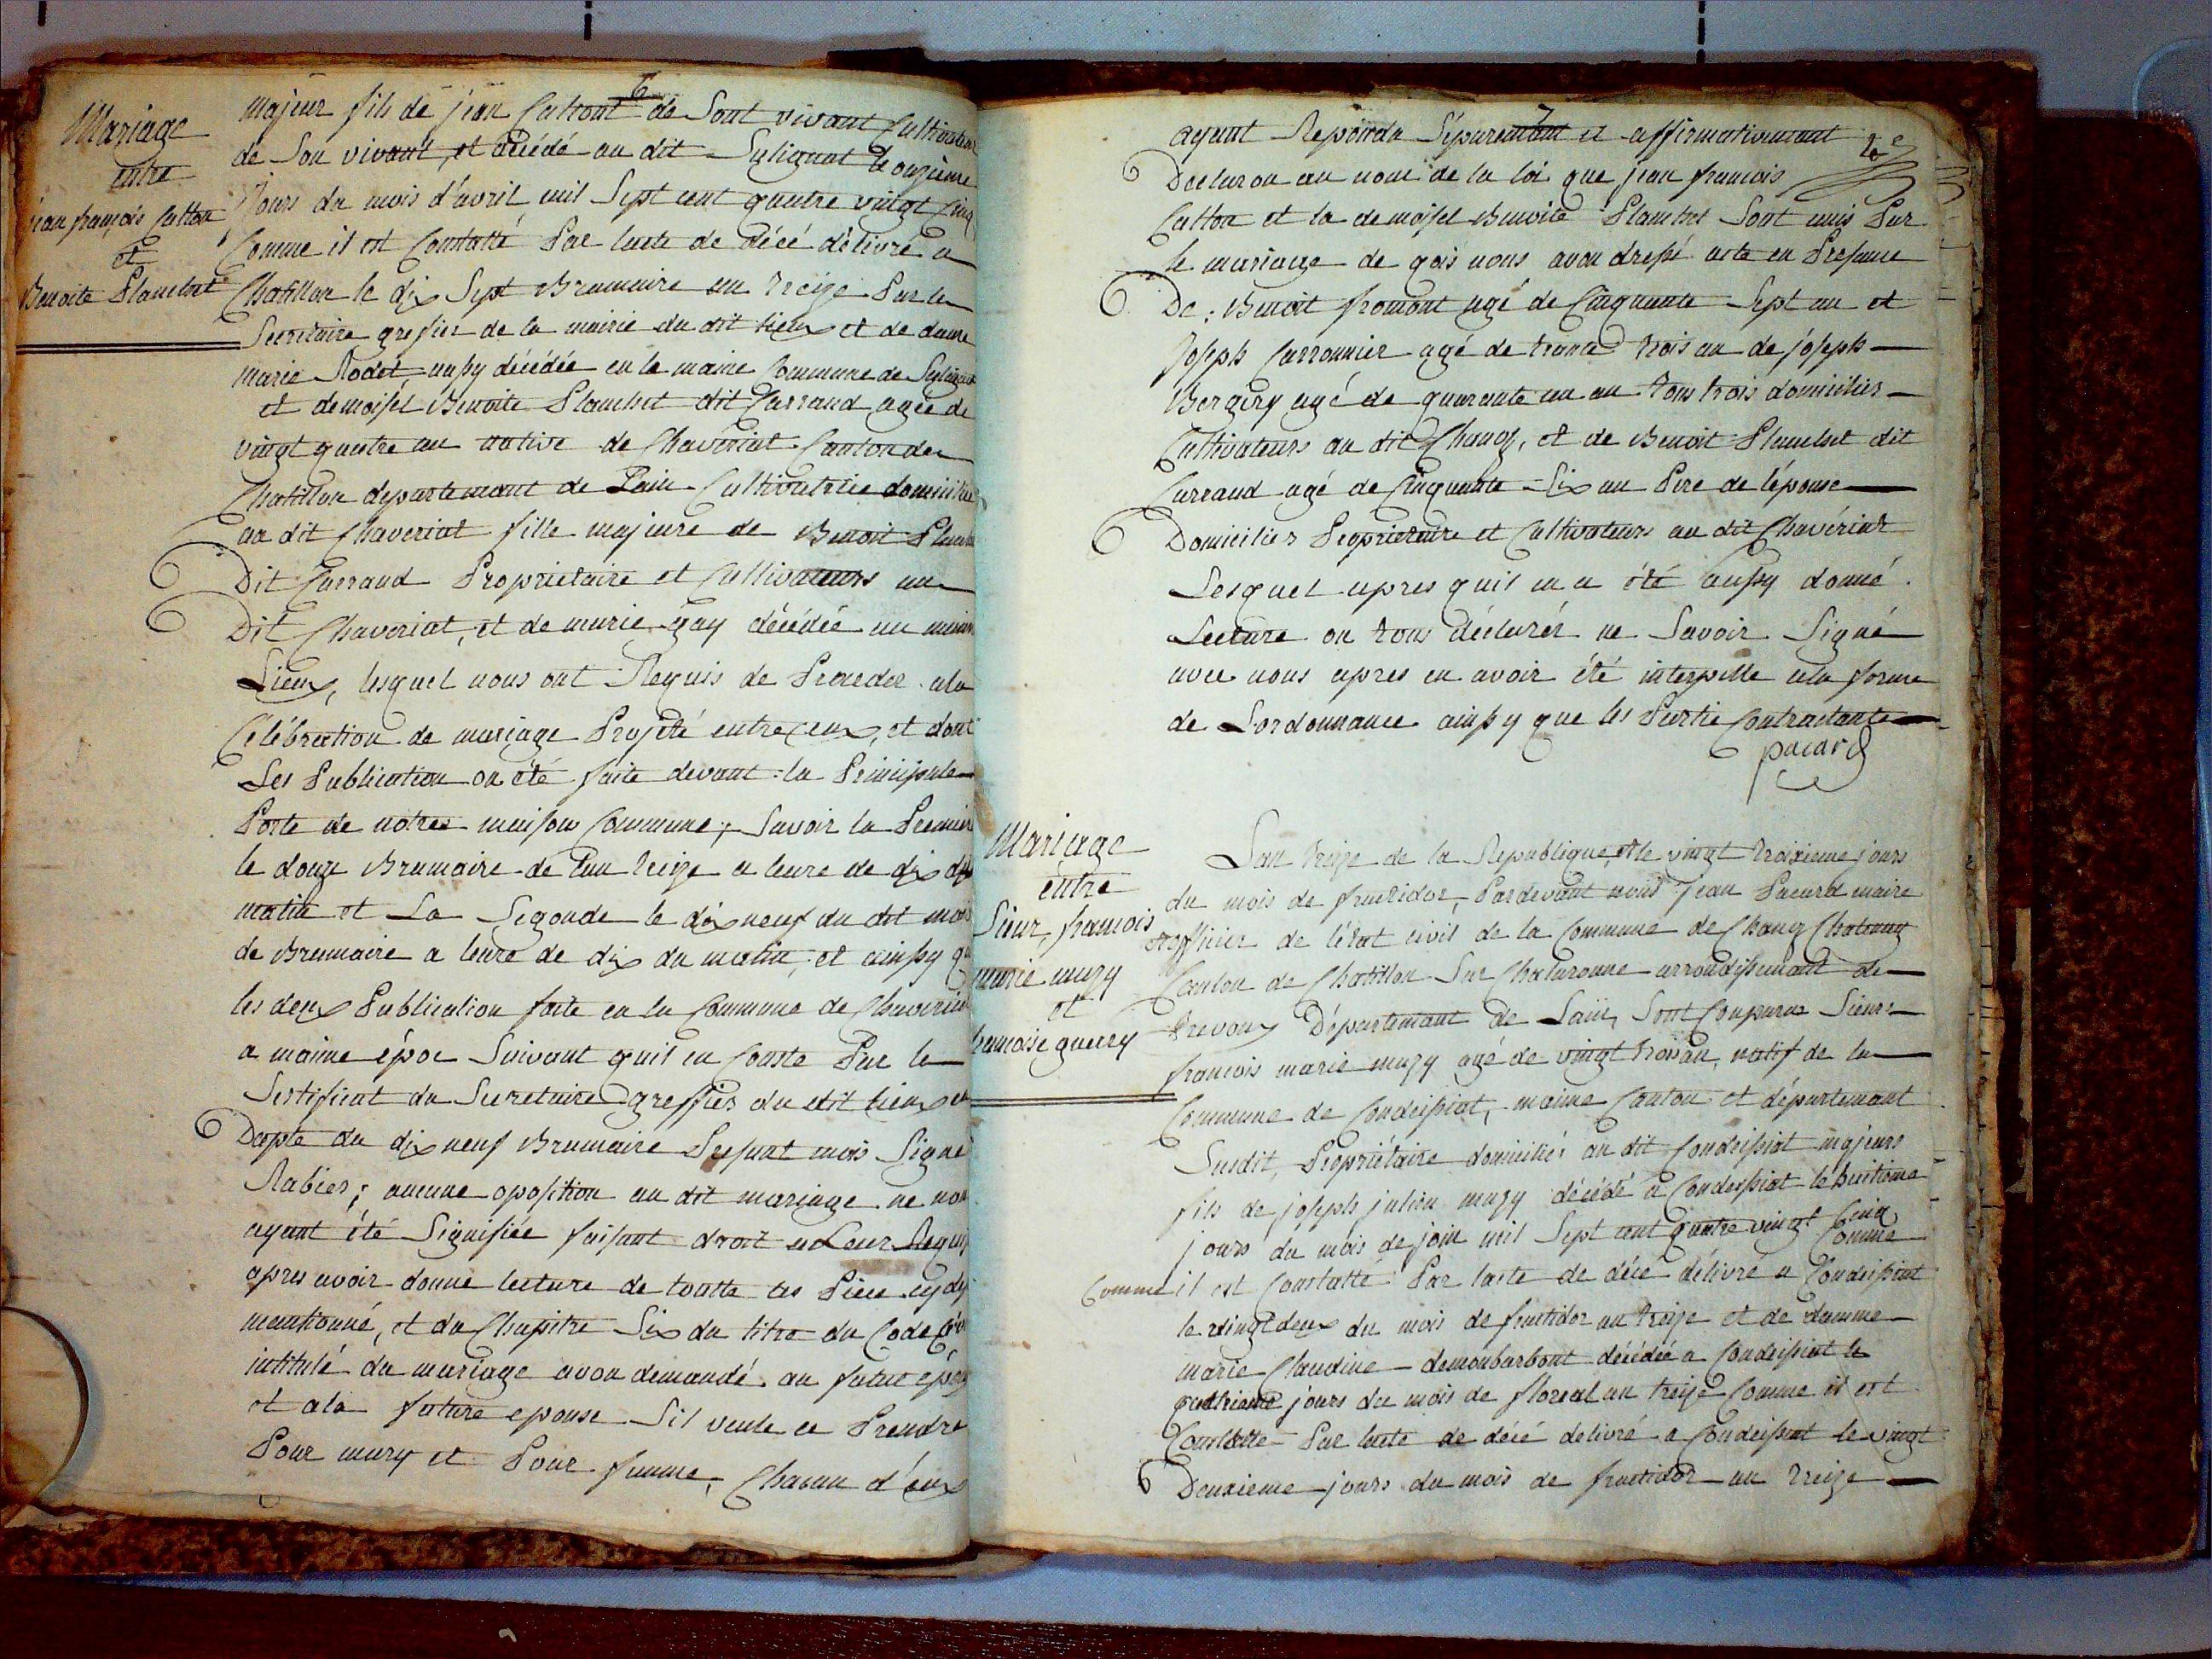 6
Mariage
entre
jean françois Catton
et
Benoite Planchet
majeur fils de jean Cattont de Sont vivant Cultivateur
de Son vivant, et décédé au dit Suligniat le onzieme
jours du mois d'avril mil Sept cent quatre vingt Cinq
Comme il est Constatté Par lacte de décé délivré a
Chatillon le dix Sept Brumaire an treize Par le
Secretaire grefier de la mairie du dit lieux et de dame
marie Rodet aussy décédée en la maime Commune de Suligniat
et demoisel Benoite Planchet dit Carraud agée de
vingt quatre an native de Chaveriat Canton de
Chatillon departemant de Lain Cultivatrice domiciliée
au dit Chaveriat fille majeure de Benoit Planchet
Dit Carraud Proprietaire et Cultivateurs au
Dit Chaveriat, et de marie gay décédée au maime
Lieux, lesquel nous ont Requis de Proceder ala
Célébration de mariage Projeté entre ceux, et dont
Les Publication on été faite devant la Principale
Porte de notres maison Commune; Savoir la Premier
le douze Brumaire de Lan treize a leure de dix du
matin et La Segonde le dix neuf du dit mois
de Brumaire a leure de dix du matin, et ainssy que
les deux Publication faite en la Commune de Chaveriat
a maime époc Suivant quil en Conste Par le
Sertificat du Secretaire greffier du dit lieux en
Dapte du dix neuf Brumaire Presant mois Signé
Rabier; aucune oposition au dit mariage ne nous
ayant été Signifiée faisant droit a Leur Requis
apres avoir donne lecture de toutte les Piece cy
mantionné, et du Chapitre Six du titre du Code Civil
intitulé du mariage avon demandé au futur épous
et ala future epouse Sil veule ce Prendre
Pour mary et Pour famme, Chacun d'eux
7
ayant Repondu Séparemant et affirmativemant
Declaron au nom de la loi que jean francois
Catton et la demoisel Benoite Planchet Sont unis Par
le mariage de qois nous avon dressé acte en Presance
De: Benoit fromont agé de Cinquante Sept an et
Joseph Carronnier agé de trante trois an de joseph
Bergiry agé de quarante un an tous trois domicilier
Cultivateurs au dit Chanoz, et de Benoit Planchet dit
Carraud agé de Cinquante Six an Pere de lépouse
Domicilier Proprietaire et Cultivateurs au dit Chavériat
Lesquel apres quil en a été aussy donné
Lecture on tous déclarér ne Savoir Signé
avec nous apres en avoir été interpelle ala forme
de Lordonnance ainssy que les Partie Contractante
pacard
Mariage
entre
Sieur, francois
marie muzy
et
francoise guerry
Lan treize de la Republique, et le vingt troixieme jours
du mois de fructidor, Pardevant nous jean Pacard maire
et officier de létat civil de la Commune de Chanoz Chatenay
Canton de Chatillon Sur Chalaronne arrondissemant de
trevoux Départemant de Lain, Sont Comparus Sieurs
francois marie muzy agé de vingt trois an, natif de la
Commune de Condeissiat, maime Canton et départemant
Susdit, Propriétaire domicilié au dit Condeissiat majeurs
fils de joseph julien muzy décédé a Condeissiat le huitieme
jours du mois de join mil Sept cent quatre vingt Cinq
Comme
Comme il est Constatté Par lacte de décé délivré a Condeissiat
le vingt deux du mois de fructidor an treize et de damme
marie Claudine demonbarbont décédée a Condeissiat le
quatrieme jours du mois de floreal an treize Comme il est
Constatte Par lacte de décé delivré a Condeissiat le vingt
Deuxieme jours du mois de fructidor an treize